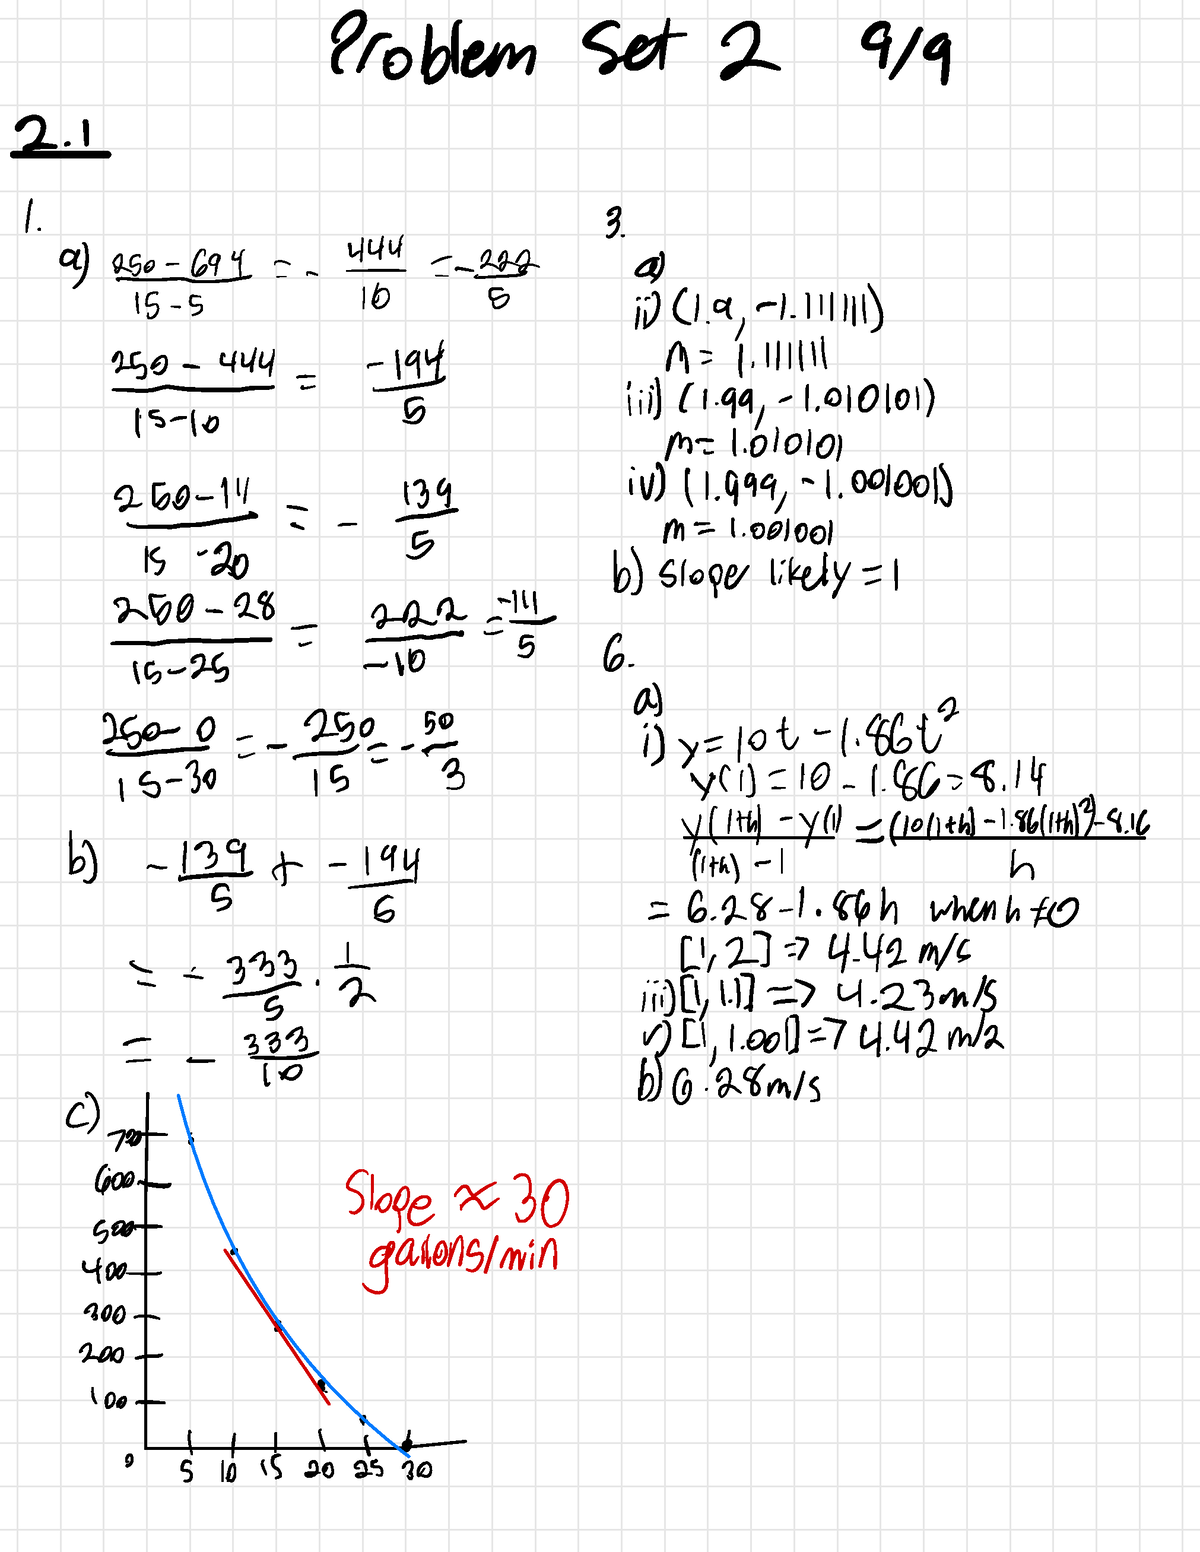 Problem Set 2 9/9
2.1
1.
a) (250-694)/(15-5) = - 444/10 = - 222/5
(250-444)/(15-10) = -194/5
(250-111)/(15-20) = - 139/5
(250-28)/(15-25) = 222/-10 = -111/5
(250-0)/(15-30) = - 250/15 = - 50/3
b) -139/5 + -194/5
= - 333/5 · 1/2
= - 333/10
c)
700
600
500
400
300
200
100
0
5 10 15 20 25 30
Slope ≈ 30
gallons/min
3.
a)
ii) (1.9, -1.111111)
m = 1.111111
iii) (1.99, -1.010101)
m = 1.010101
iv) (1.999, -1.001001)
m = 1.001001
b) slope likely = 1
6.
a)
i) y = 10t - 1.86t²
y(1) = 10 - 1.86 = 8.14
(y(1+h) - y(1))/((1+h) - 1) = ((10(1+h) - 1.86(1+h)²) - 8.16)/h
= 6.28 - 1.86h when h ≠ 0
[1, 2] => 4.42 m/s
iii) [1, 1.1] => 4.23 m/s
v) [1, 1.001] => 4.42 m/2
b) 6.28 m/s